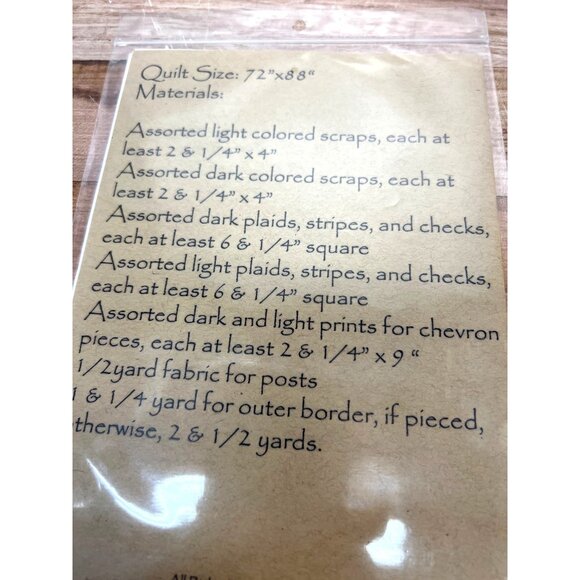 Quilt Size: 72"x88"
Materials:
Assorted light colored scraps, each at
least 2 & 1/4" x 4"
Assorted dark colored scraps, each at
least 2 & 1/4" x 4"
Assorted dark plaids, stripes, and checks,
each at least 6 & 1/4" square
Assorted light plaids, stripes, and checks,
each at least 6 & 1/4" square
Assorted dark and light prints for chevron
pieces, each at least 2 & 1/4" x 9 "
1/2yard fabric for posts
1 & 1/4 yard for outer border, if pieced,
therwise, 2 & 1/2 yards.